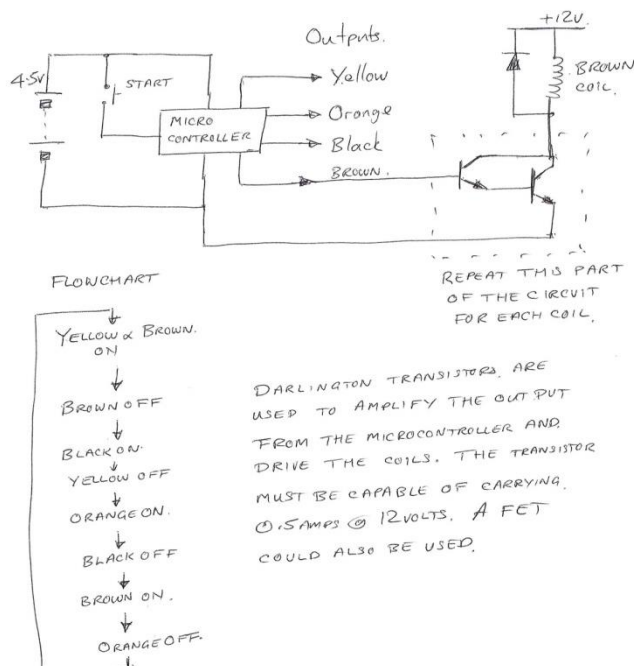 Outputs.
+12v.
4.5v
START
Yellow
BROWN
COIL.
MICRO
CONTROLLER
Orange
Black
BROWN.
FLOWCHART
REPEAT THIS PART
OF THE CIRCUIT
FOR EACH COIL.
YELLOW & BROWN.
ON
BROWN OFF
BLACK ON.
YELLOW OFF
ORANGE ON.
BLACK OFF
BROWN ON.
ORANGE OFF.
DARLINGTON TRANSISTORS, ARE
USED TO AMPLIFY THE OUTPUT
FROM THE MICROCONTROLLER AND
DRIVE THE COILS. THE TRANSISTOR
MUST BE CAPABLE OF CARRYING.
0.5AMPS @ 12VOLTS. A FET
COULD ALSO BE USED.